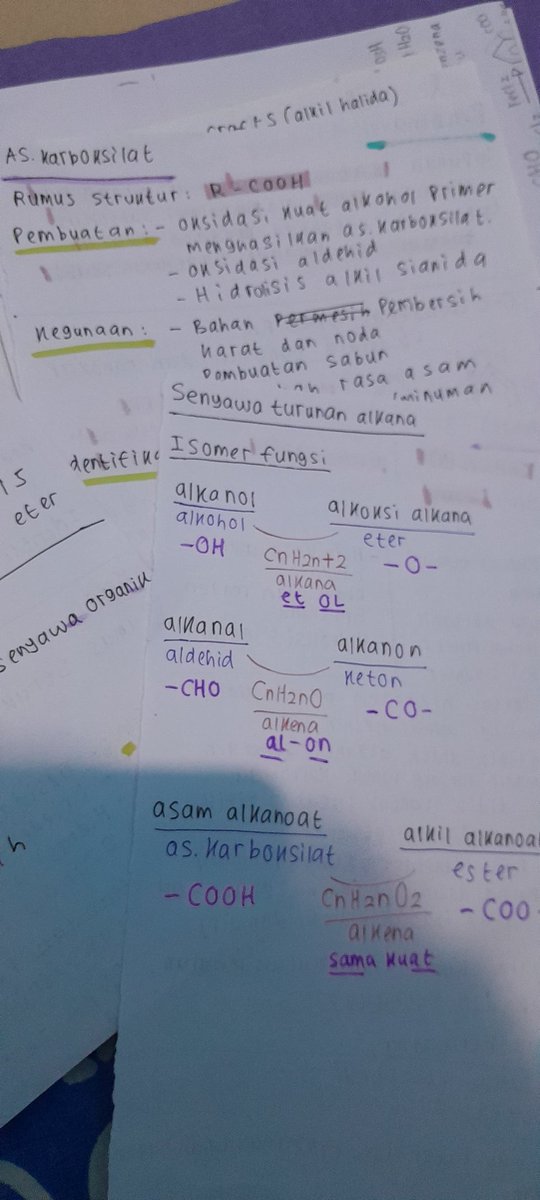 (alkil halida)
AS. Karboksilat
Rumus struktur: R-COOH
Pembuatan: - oksidasi kuat alkohol primer
menghasilkan as. karboksilat.
- oksidasi aldehid
- Hidrolisis alkil sianida
Kegunaan: - Bahan Pembersih
karat dan noda
Pembuatan sabun
rasa asam
minuman
Senyawa turunan alkana
Isomer fungsi
dentifik
eter
senyawa organik
alkanol alkoksi alkana
alkohol eter
-OH CnH2n+2 -O-
alkana
et OL
alkanal alkanon
aldehid keton
-CHO CnH2nO -CO-
alkena
al-on
asam alkanoat alkil alkanoa
as. karboksilat ester
-COOH CnH2nO2 -COO
alkena
sama kuat